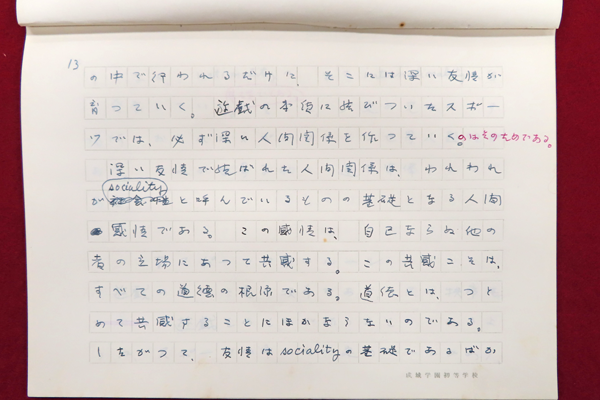 13
の中で行われるだけに、そこには深い友情が
育っていく。遊戯の本質に結びついたスポー
ツでは、必ず深い人間関係を作っていくのはそのためである。
深い友情で結ばれた人間関係は、われわれ
sociality
がと呼んでいるものの基礎となる人間
感情である。この感情は、自己ならぬ他の
者の立場にあって共感する。この共感こそは、
すべての道徳の根源である。道徳とは、つと
めて共感することにほかならないのである。
したがって、友情はsocialityの基礎であるばか
武蔵学園初等学校